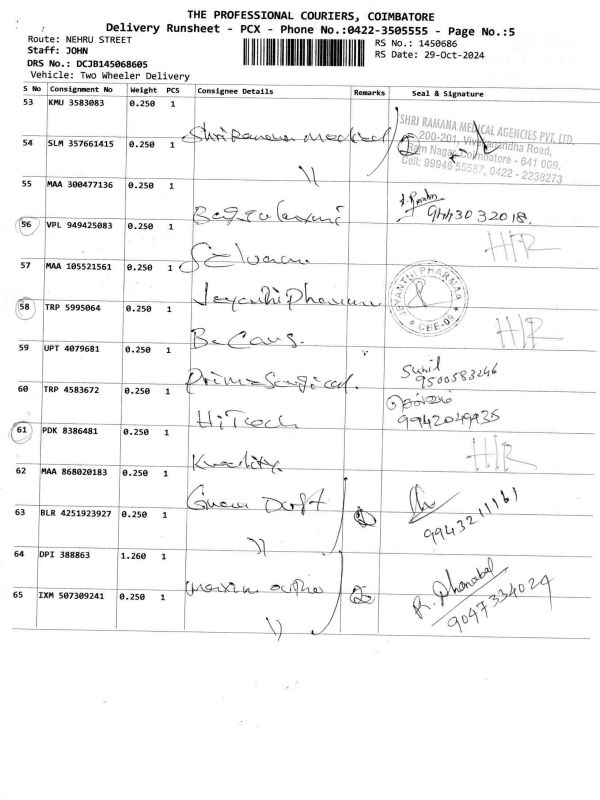 THE PROFESSIONAL COURIERS, COIMBATORE
Delivery Runsheet - PCX - Phone No.:0422-3505555 - Page No.:5
Route: NEHRU STREET
Staff: JOHN
RS No.: 1450686
RS Date: 29-Oct-2024
DRS No.: DCJB145068605
Vehicle: Two Wheeler Delivery
S No Consignment No Weight PCS Consignee Details Remarks Seal & Signature
53 KMU 3583083 0.250 1 Shri Ramana Medical
SHRI RAMANA MEDICAL AGENCIES PVT. LTD.
200-201, Vivekanandha Road,
Ram Nagar, Coimbatore - 641 009.
Cell: 99946 55587, 0422 - 2238273
54 SLM 357661415 0.250 1 "
55 MAA 300477136 0.250 1 9443032018.
56 VPL 949425083 0.250 1 Selvam H/R
57 MAA 105521561 0.250 1 Jayanthi Pharma
JAYANTHI PHARMAA
CBE-09
58 TRP 5995064 0.250 1 H/R
59 UPT 4079681 0.250 1 Prime Surgical. Sunil
9500583246
60 TRP 4583672 0.250 1 HiTech
9942049935
61 PDK 8386481 0.250 1 Kwality H/R
62 MAA 868020183 0.250 1
63 BLR 4251923927 0.250 1 " 2 9943211161
64 DPI 388863 1.260 1 Maxim ortho
65 IXM 507309241 0.250 1 " 2 R. Dhanabal
9047334024